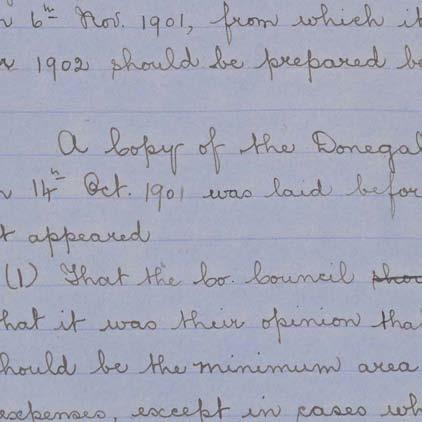 n 6th Nov. 1901, from which it
r 1902 should be prepared be
A copy of the Donegal
n 14th Oct. 1901 was laid befor
t appeared
(1) That the Co. Council shou
hat it was their opinion tha
hould be the minimum area
expenses, except in cases wh